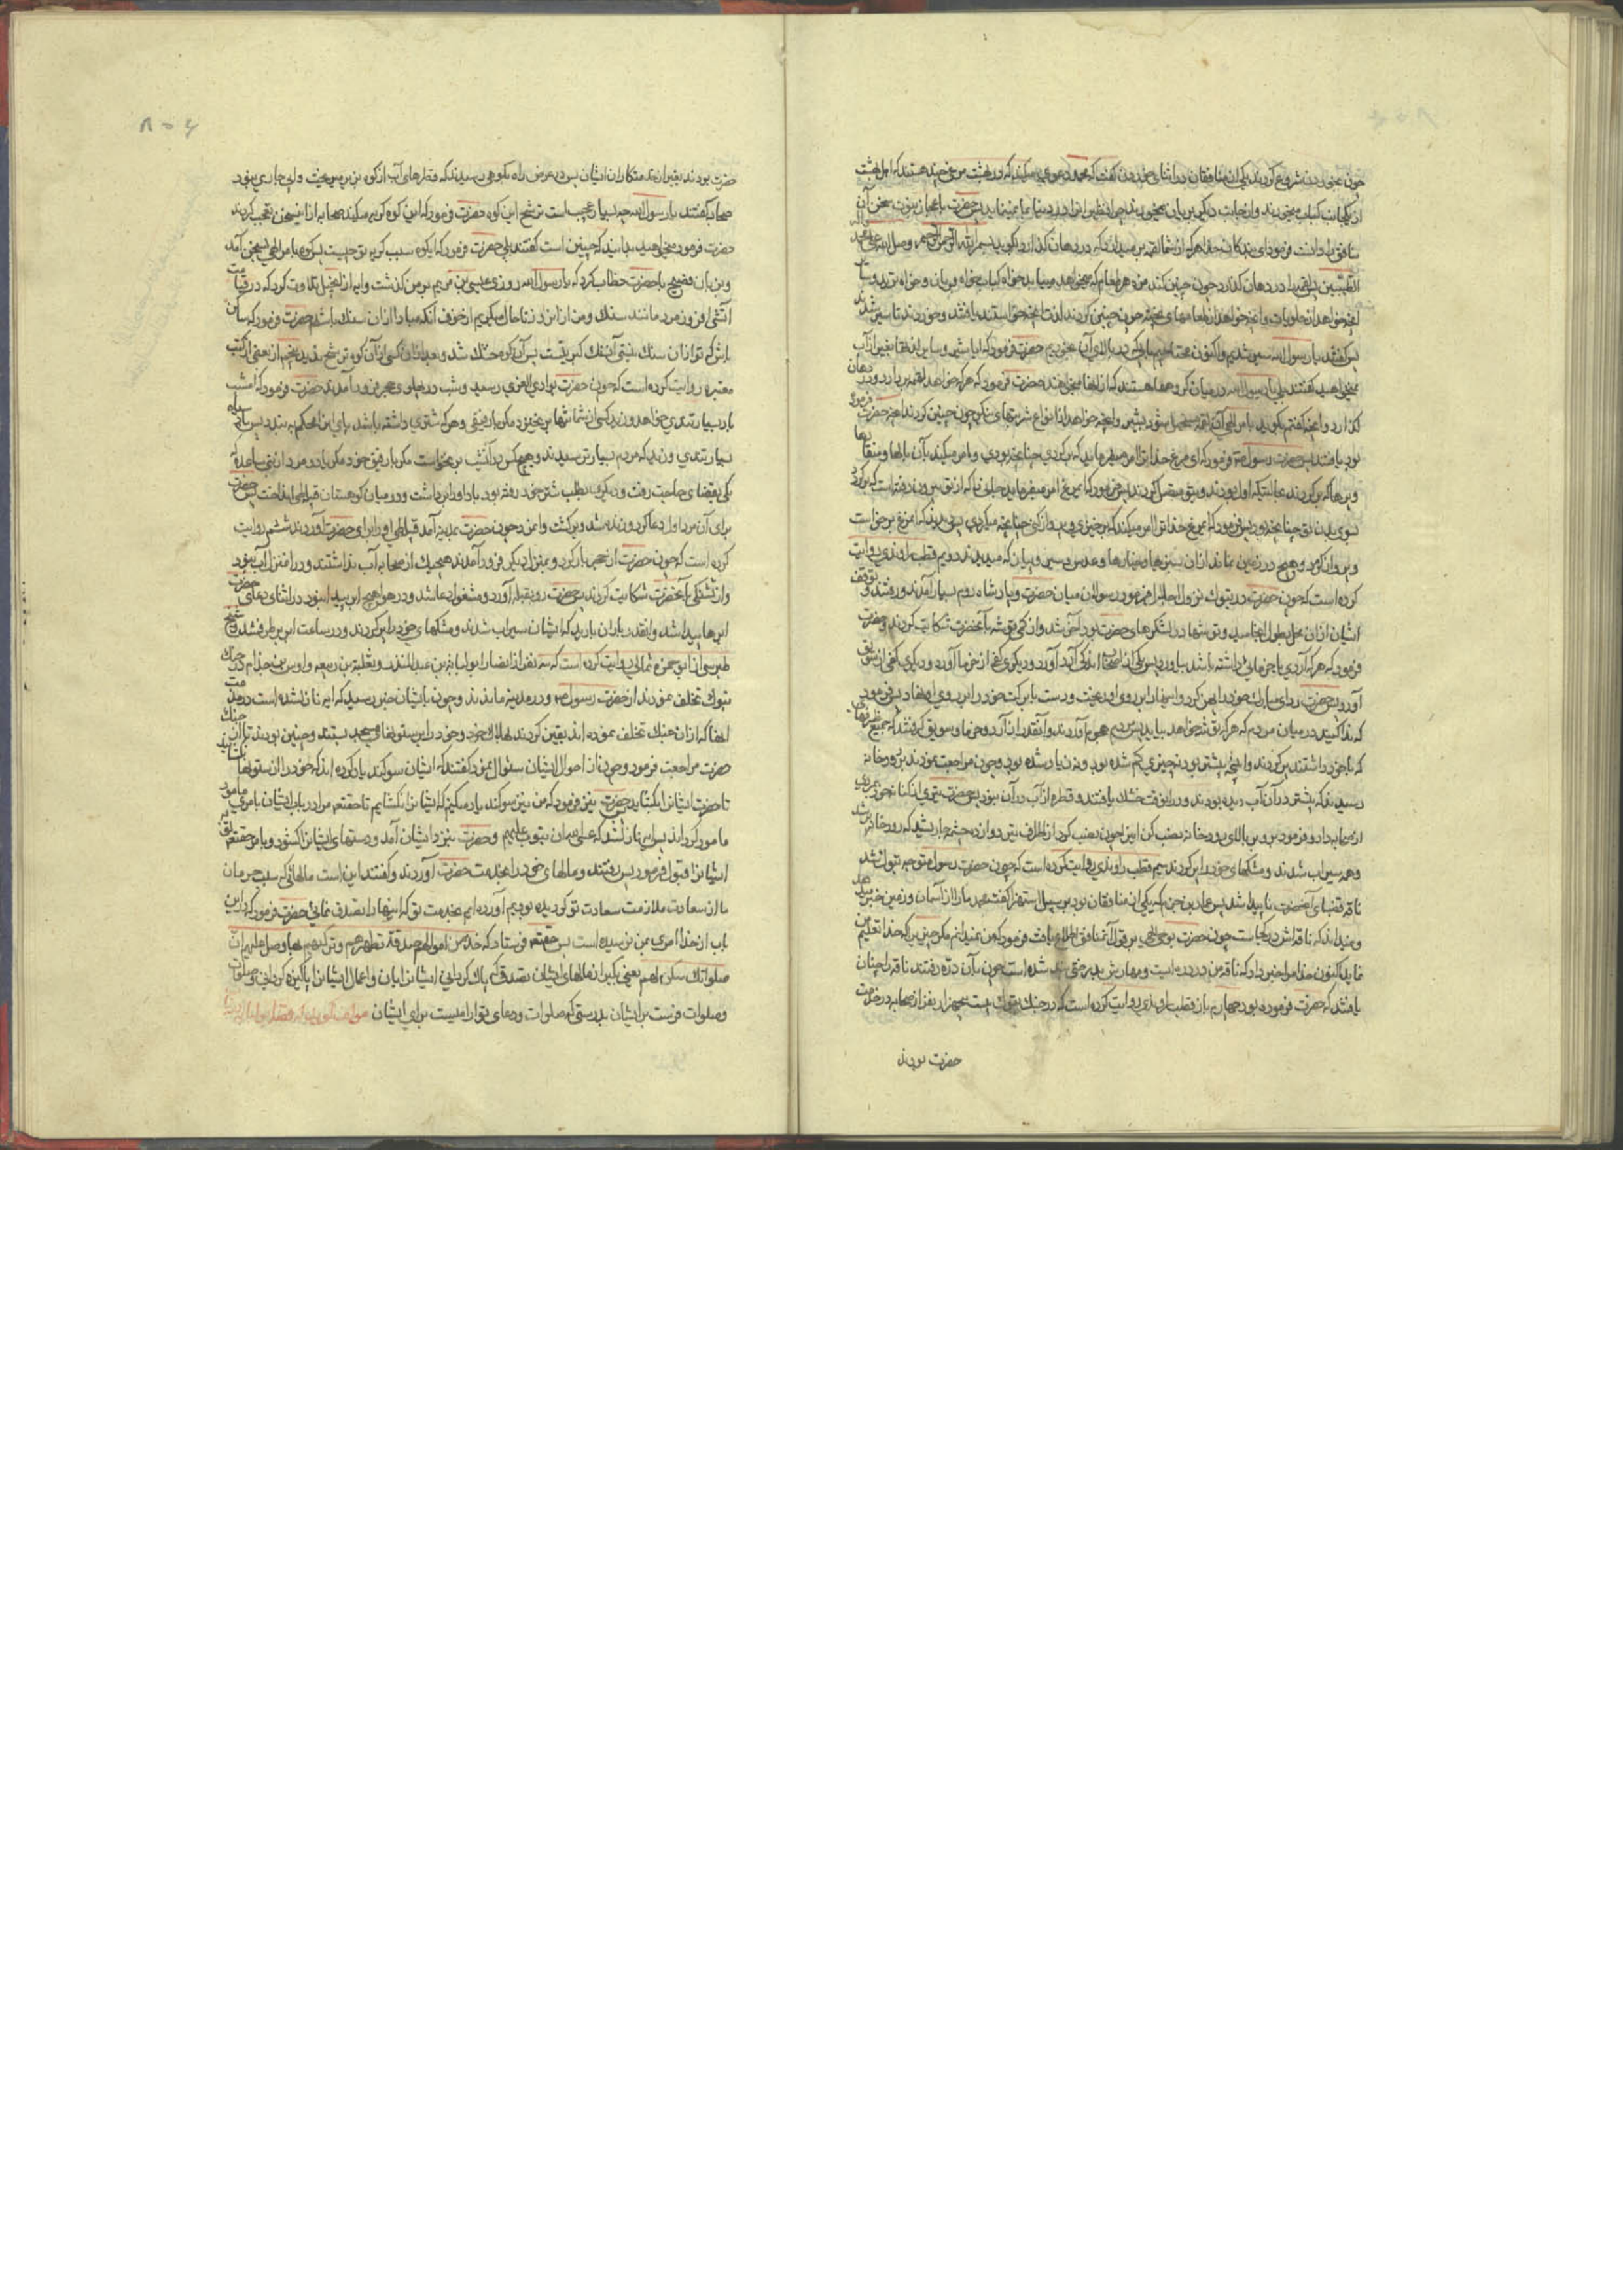 چون بخوردن شروع کردند یکی از منافقان در اثنای خوردن گفت که محمد دعوی میکند که در بهشت مرغی چند هستند که اهل بهشت
از یکجانب کباب میخورند و از جانب دیگر بریان میخورند چرا نظیر آنرا در دنیا بما نمینماید پس حضرت باعجاز نبوت سخن آن
منافق را دانست فرمود ای بندکان خدا هر که از شما لقمه بر میدارد که در دهان گذارد بگوید بسم الله الرحمن الرحیم وصلی الله علی محمد
الطیبین پس لقمه را در دهان گذارد چون چنین کند مزه هر طعام که میخواهد مییابد خواه کباب خواه بریان و خواه ترید و سایر
آنچه خواهد از حلویات چون چنین کردند لذت آنچه خواستند یافتند و خوردند تا سیر شدند
پس گفتند یا رسول الله سیر شدیم و اکنون محتاجیم بآبی که بر بالای آن بخوریم حضرت فرمود که آیا شیر و سایر بغیر از آب
نمیخواهید گفتند بلی یا رسول الله در میان گروهی هستند که از اینها میخواهند حضرت فرمود که هر که خواهد لقمه بردارد و در دهان
گذارد و آنچه گفتم بگوید بامر الهی آن لقمه مستحیل شود بشیر و آنچه خواهد از انواع شربتهای نیکو چون چنین کردند آنچه حضرت فرموده
بود یافتند پس حضرت رسول فرمود که ای مرغ خدا ترا امر میفرماید که برگردی چنانچه بودی و امر میکند آن بالها و منقارها
بسوی بدن تو چنانچه بود پس فرمود که ای مرغ خدا ترا امر میکند که برخیزی و پرواز کنی چنانچه میکردی پس دیدند که آن مرغ برخواست
و پرواز کرد و هیچ در زمین نماند از آن سبزیها و خیارها و عدس و سیر و پیاز که میدیدند دویم قطب راوندی روایت
کرده است که چون حضرت در تبوک نزول اجلال فرمود رسولان میان حضرت و پادشاه روم بسیار آمدند و رفتند و توقف
ایشان از آن محل بطول انجامید و توشها در لشکرهای حضرت بود آخر شد و از کمی توشه بآنحضرت شکایت کردند حضرت
فرمود که هر که آردی یا خرمائی داشته باشد بیاورد پس یکی از اصحاب اندکی آرد آورد و دیگری کفی از خرما آورد و دیگری کفی از سویق
آورد پس حضرت ردای مبارک خود را پهن کرد و اینها را بر روی او ریخت و دست بابرکت خود را بر روی اینها نهاد پس فرمود
که ندا کنید در میان مردم که هر که توشه خواهد بیاید پس مردم هجوم آوردند و آنقدر از آرد و خرما و سویق گرفتند که جمیع ظرفهائی
که با خود داشتند پر کردند و آنچه پیشتر بود نه چیزی کم شده بود و نه زیاد شده بود و چون مراجعت نمودند برودخانه
رسیدند که پیشتر در آن آب دیده بودند و در آنوقت خشک یافتند و قطره از آب در آن نبود پس حضرت تیری از کنانه خود بمردی
از صحابه داد و فرمود برو و بر بالای رودخانه نصب کن این چون نصب کرد از اطراف تیر دوازده چشمه جاری شد که رودخانه پر شد
و همه سیراب شدند و مشکهای خود را پر کردند سیم قطب راوندی روایت کرده است که چون حضرت رسول متوجه تبوک شد
ناقه قصوای آنحضرت ناپیدا شد پس عمارة بن حزم که یکی از منافقان بود بر سبیل استهزا گفت محمد ما را از آسمان و زمین خبر میدهد
و نمیداند که ناقه اش در کجاست چون حضرت بوحی الهی بر قول آنمنافق اطلاع یافت فرمود که من نمیدانم مگر چیزی را که خدا تعلیم من
نماید اکنون خدا مرا خبر داد که ناقه من در دره است و مهارش بر درختی بند شده است چون بآن دره رفتند ناقه را چنان
یافتند که حضرت فرموده بود چهارم باز قطب راوندی روایت کرده است که در جنگ تبوک بیست و پنجهزار نفر از صحابه در خدمت
حضرت بودند
۸۰۴
حضرت بودند بغیر از خدمتکاران ایشان پس در عرض راه بکوهی رسیدند که قطرهای آب از کوه بزیر میریخت ولی جاری نبود
صحابه گفتند یا رسول الله چه بسیار عجیب است ترشح این کوه حضرت فرمود که این کوه گریه میکند صحابه از این سخن تعجب کردند
حضرت فرمود میخواهید بدانید که چنین است گفتند بلی حضرت فرمود که ای کوه سبب گریه تو چیست پس کوه بامر الهی بسخن آمد
و بزبان فصیح باحضرت خطاب کرد که یا رسول الله روزی عیسی بن مریم بر من گذشت و آیه از انجیل تلاوت کرد که در قیامت
آتشی افروزند مانند سنک و من از آن روز تا حال میگریم از خوف آنکه مبادا از آن سنک باشم حضرت فرمود که ساکن
باش که تو از آن سنک نیستی آن سنک کبریتست پس آن کوه خشک شد و بعد از آن کسی از آن کوه ترشح ندید پنجم از بعضی از کتب
معتبره روایت کرده است که چون حضرت بوادی القری رسید و شب در پهلوی حجر فرود آمدند حضرت فرمود که امشب
باد بسیار تندی خواهد وزید کسی از شما تنها برنخیزد مگر با رفیقی و هر که شتری داشته باشد پای آنرا محکم ببندد پس باد سیاه
بسیار تندی وزید که مردم بسیار ترسیدند و هیچکس در آنشب برنخواست مگر با رفیق خود مگر دو مرد از بنی ساعده که
یکی بقضای حاجت رفت و دیگری بطلب شتر خود رفته بود باد او را برداشت و در میان کوهستان قبیله طی انداخت پس حضرت
برای آن مرد اول دعا کرد و زنده شد و برگشت و آخر چون حضرت بمدینه آمد قبیله طی او را برای حضرت آوردند ششم روایت
کرده است که چون حضرت از حجر بار کرد و بمنزل دیگر فرود آمدند هیچیک از صحابه آب نداشتند و در آنمنزل آب نبود
و از تشنگی بآنحضرت شکایت کردند پس حضرت رو بقبله آورد و مشغول دعا شد و در هوا هیچ ابر پیدا نبود در اثنای دعای حضرت
ابرها پیدا شد و آنقدر باران بارید که ایشان سیراب شدند و مشکهای خود را پر کردند و در ساعت ابر برطرف شد و شیخ
طبرسی از ابو حمزه ثمالی روایت کرده است که سه نفر از انصار ابو لبابة بن عبد المنذر و ثعلبة بن ودیعه و اوس بن حذام در جنک
تبوک تخلف نمودند از حضرت رسول و در مدینه ماندند و چون بایشان خبر رسید که آیه نازل شده است در مذمت
آنها که از آن جنک تخلف نموده اند یقین کردند بهلاک خود و خود را بر ستونهای مسجد بستند و چنین بودند تا از آن جنک
حضرت مراجعت فرمود و چون از احوال ایشان سئوال نمود گفتند که ایشان سوگند یاد کرده اند که خود را از ستونها نگشایند
تا حضرت ایشانرا بگشاید حضرت نیز فرمود که من نیز سوگند یاد میکنم که ایشانرا نگشایم تا حقتعالی مرا در باب ایشان بامری مامور
مامور گرداند پس آیه نازل شد که عسی الله ان یتوب علیهم و حضرت بنزد ایشان آمد و دستهای ایشانرا گشود و بامر حقتعالی توبه
ایشانرا قبول فرمود پس رفتند و مالهای خود را بخدمت حضرت آوردند و گفتند این است مالهائی که سبب حرمان
ما از سعادت ملازمت سعادت تو گردیده بودیم آورده ایم بخدمت تو که اینها را تصدق نمائی حضرت فرمود که در این
باب از خدا امری بمن نرسیده است پس حقتعالی فرستاد که خذ من اموالهم صدقة تطهرهم وتزکیهم بها وصل علیهم ان
صلواتک سکن لهم یعنی بگیر از مالهای ایشان تصدقی که پاک گردانی ایشانرا بآن و اعمال ایشانرا پاکیزه گردانی
وصلوات فرست بر ایشان بدرستی که صلوات و دعای تو آرامیست برای ایشان مولف گوید که